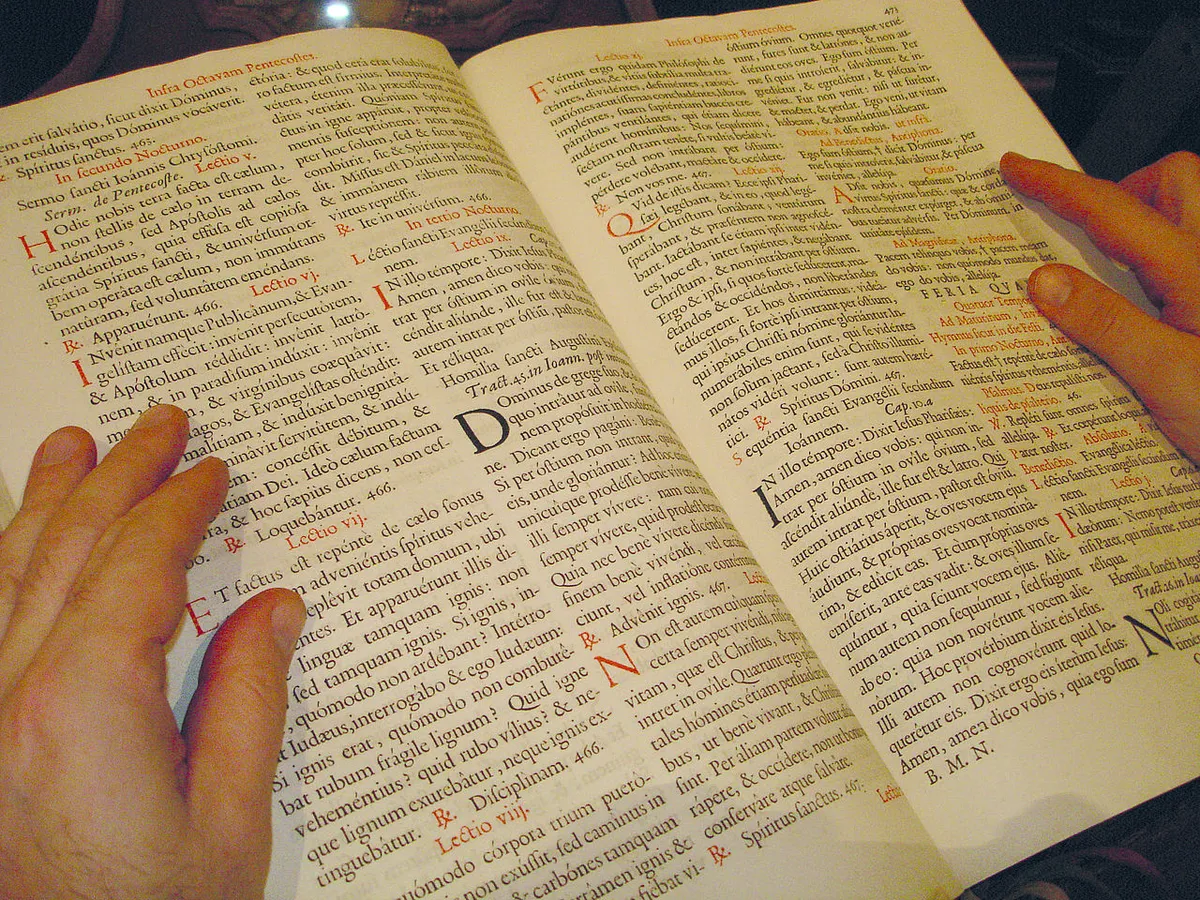 Infra Octavam Pentecostes.
em erit salvátio, sicut dixit Dóminus,
in resíduis, quos Dóminus vocáverit.
Spíritus sanctus. 463.
In secundo Nocturno.
Sermo sancti Ioánnis Chrysóstomi.
Serm. de Pentecoste. Lectio v.
HOdie nobis terra facta est cælum,
non stellis de cælo in terram de-
scendéntibus, sed Apóstolis ad cælos
ascendéntibus, quia effúsa est copiósa
grátia Spíritus sancti, & univérsum or-
bem operáta est cælum, non immútans
natúram, sed voluntátem eméndans.
℟. Apparuérunt. 466. Lectio vj.
INvénit namque Publicánum, & Evan-
gelístam effécit: invénit persecutórem,
& Apóstolum réddidit: invénit latró-
nem, & in paradísum indúxit: invénit
& virgínibus coæquávit:
magos, & Evangelístas osténdit:
malítiam, & indúxit benignitá-
servitútem, & indú-
concéssit débitum, &
Dei. Ideò cælum factum
& hoc sæpius dicens, non ces-
℟. Loquebántur. 466.
Lectio vij.
ET factus est repénte de cælo sonus
adveniéntis spíritus vehe-
replévit totam domum, ubi
Et apparuérunt illis di-
linguæ tamquam ignis: non
sed tamquam ignis. Si ignis, in-
quómodo non ardébant? Intérro-
Iudæus, interrogábo & ego Iudæum:
Si ignis erat, quómodo non conburé-
bat rubum frágile lignum? Quid igne
veheméntius? quid rubo vílius? & ne-
que lignum exurebátur, neque ignis ex-
tinguebátur. ℟. Disciplínam. 466.
Lectio viij.
quómodo córpora trium pueró-
non exússit, sed camínus in
& carbónes tamquam
ignem &
fiébat vi-
ctória: & quod cera erat
ro factum est fírmius.
vétera, étenim illa
veritáti. Quóniam
ctus in igne appáruit, propter
mens susceptiónem: non
pter hoc solum, sed & sicut ignis
combúrit, sic & Spíritus peccá-
dit. Missus est Dániel in lacum
& immánem rábiem illárum
virtus représsit.
℟. Ite in univérsum. 466.
In tertio Nocturno.
Léctio sancti Evangélii
nem. Lectio ix. Cap.
IN illo témpore: Dixit Iesus
Amen, amen dico vobis:
trat per óstium in ovíle
ascéndit aliúnde, ille fur est & latro.
autem intrat per óstium, pastor est
Et réliqua.
Homilía sancti Augustíni
Tract. 45. in Ioann. post init.
DOminus de grege suo
quo intrátur ad ovíle,
nem propósuit in hodiér-
ne. Dicant ergo pagáni: Bene
Si per óstium non intrant, quid
eis, unde gloriántur: Ad hoc
unicuíque prodésse bene vívere,
illi semper vívere: nam cui
semper vívere, quid prodest bene
Quia nec bene vívere dicéndi
finem benè vivéndi, vel cæ-
ciunt, vel inflatióne contémnunt.
℟. Advénit ignis. 467.
NOn est autem cuíquam
certa semper vivéndi, nisi
vitam, quæ est Christus, &
intret in ovíle. Quærunt ergo
tales hómines étiam persuadére
bus, ut benè vivant, & Christiáni
sint. Per áliam partem volunt
rápere, & occídere, non ut bonus
conserváre atque salváre.
℟. Spíritus sanctus. 467.
Infra Octavam Pentecostes. 471
Lectio xj.
FVérunt ergo quidam Philósophi de
virtútibus & vítiis subtília multa tra-
ctántes, dividéntes, definiéntes, ratio-
acutíssimas concludéntes, libros
impléntes, suam sapiéntiam buccis cre-
pántibus ventilántes, qui étiam dícere
audérent homínibus: Nos sequímini,
sectam nostram tenéte, si vultis beátè ví-
vere. Sed non intrábant per óstium:
pérdere volébant, mactáre & occídere.
℟. Non vos me. 467. Lectio xij.
QVid de istis dicam? Ecce ipsi Phari-
sæi legébant, & in eo, quod legé-
bant, Christum sonábant, ventúrum
sperábant, & præséntem non agnoscé-
bant. Iactábant se étiam ipsi inter vidén-
tes, hoc est, inter sapiéntes, & negábant
Christum, & non intrábant per óstium.
Ergo & ipsi, si quos fortè sedúcerent, ma-
ctándos & occidéndos, non liberándos
sedúcerent. Et hos dimíttimus: videá-
mus illos, si fortè ipsi intrant per óstium,
qui ipsíus Christi nómine gloriántur. In-
numerábiles enim sunt, qui se vidéntes
non solùm jactant, sed à Christo illumi-
nátos vidéri volunt: sunt autem hæré-
tici. ℟. Spíritus Dómini. 467.
Sequéntia sancti Evangélii secúndum
Ioánnem. Cap. 10. a
IN illo témpore: Dixit Iesus Pharisǽis:
Amen, amen dico vobis: qui non in-
trat per óstium in ovíle óvium, sed
ascéndit aliúnde, ille fur est & latro. Qui
autem intrat per óstium, pastor est óviũ.
Huic ostiárius áperit, & oves vocem ejus
áudiunt, & próprias oves vocat nomina-
tim, & edúcit eas. Et cùm próprias oves
emíserit, ante eas vadit: & oves illum se-
quúntur, quia sciunt vocem ejus. Alié-
num autem non sequúntur, sed fúgiunt
ab eo: quia non novérunt vocem alie-
nórum. Hoc provérbium dixit eis Iesus.
Illi autem non cognovérunt quid lo-
querétur eis. Dixit ergo eis íterum Iesus:
Amen, amen dico vobis, quia ego sum
B. M. N.
óstium óvium. Omnes quotquot vené-
runt, fures sunt & latrónes, & non au-
diérunt eos oves. Ego sum óstium. Per
me si quis introíerit, salvábitur: & in-
grediétur, & egrediétur, & páscua in-
véniet. Fur non venit: nisi ut furétur,
& mactet, & perdat. Ego veni, ut vitam
hábeant, & abundántiùs hábeant.
Oratio, Adsit nobis. ut infrà.
Ad Benedictus, Antiphona.
Ego sum óstium, dicit Dóminus: per
me si quis introíerit, salvábitur, & páscua
Oratio.
ADsit nobis, quǽsumus Dómine,
virtus Spíritus sancti: quæ & corda
nostra cleménter expúrget, & ab ómnibus
tueátur advérsis. Per Dóminum.
ejúsdem.
Ad Magnificat, Antiphona.
Pacem relínquo vobis, pacem meam
do vobis: non quómodo mundus dat,
vobis, allelúja.
FERIA QUAR
Quatuor Tempor
Ad Matutinum,
Hymnus sicut in die Festi.
In primo Nocturno, Ant.
Factus est repénte de cælo sonus
veniéntis spíritus veheméntis,
Psalmus Deus repulísti nos,
liquis de psalterio. 46.
℣. Repléti sunt omnes Spíritu
allelúja. ℟. Et cœpérunt loqui,
Pater noster. Absolutio, A
Benedictio. Evangélica léctio
Léctio sancti Evangélii secúndum
nem. Lectio j. Cap.
IN illo témpore: Dixit Iesus
dæórum: Nemo potest venire
nisi Pater, qui misit me,
réliqua.
Homilía sancti Augustíni
Tract. 26. in Ioann.
NOli cogitáre